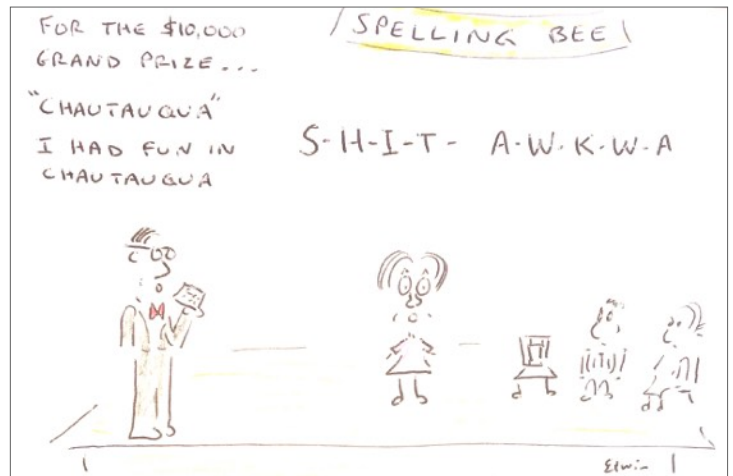 FOR THE $10,000
GRAND PRIZE...
"CHAUTAUQUA"
I HAD FUN IN
CHAUTAUQUA
SPELLING BEE
S-H-I-T- A-W-K-W-A